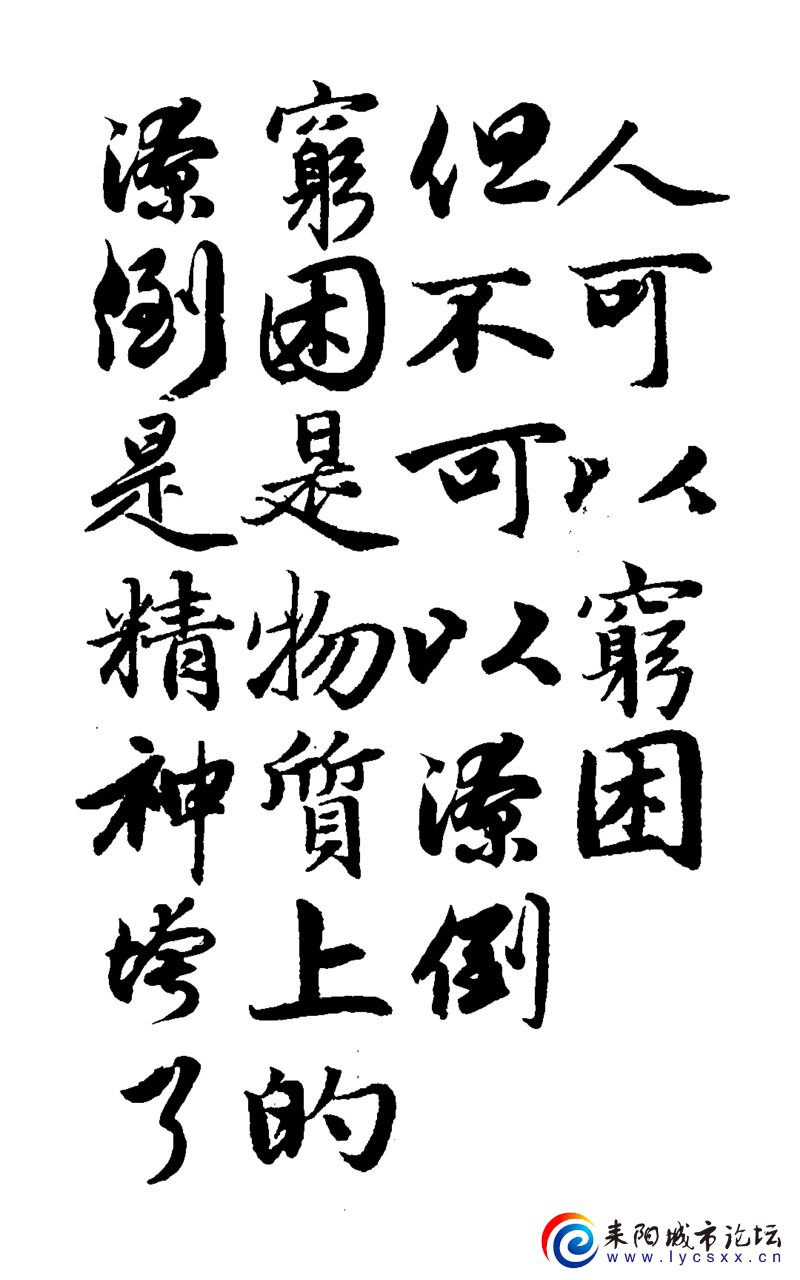 人可以窮困
但不可以潦倒
窮困是物質上的
潦倒是精神垮了
耒阳城市论坛
www.lycsxx.cn